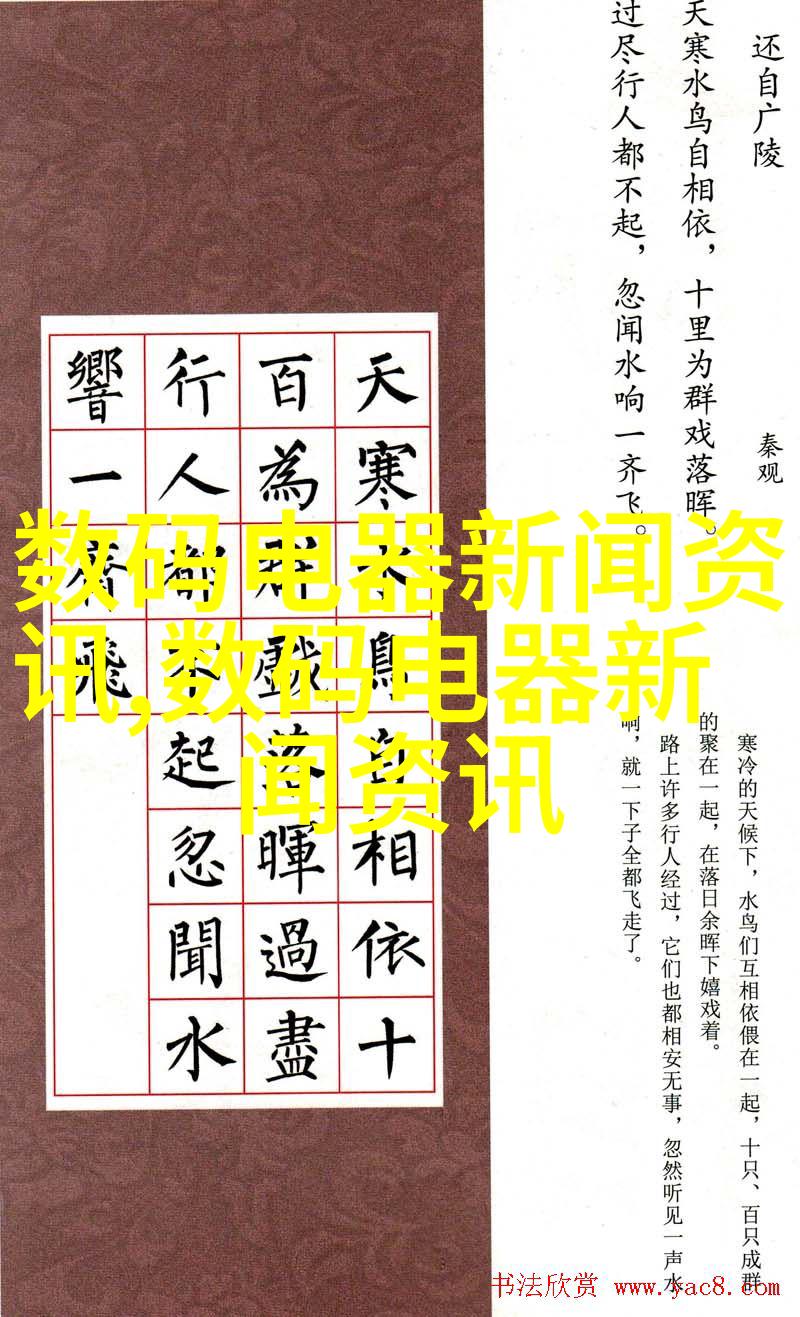 还自广陵
秦观
天寒水鸟自相依，十里为群戏落晖。
过尽行人都不起，忽闻水响一齐飞。
寒冷的天候下，水鸟们互相依偎在一起，十只、百只成群
的聚在一起，在落日余晖下嬉戏着。
路上许多行人经过，它们也都相安无事，忽然听见一声水
响，就一下子全都飞走了。
天寒水鳥自相依十
百為群戲落暉過盡
行人都不起忽聞水
響一齊飛
数码电器新闻资
讯,数码电器新
闻资讯
书法欣赏 www.yac8.com